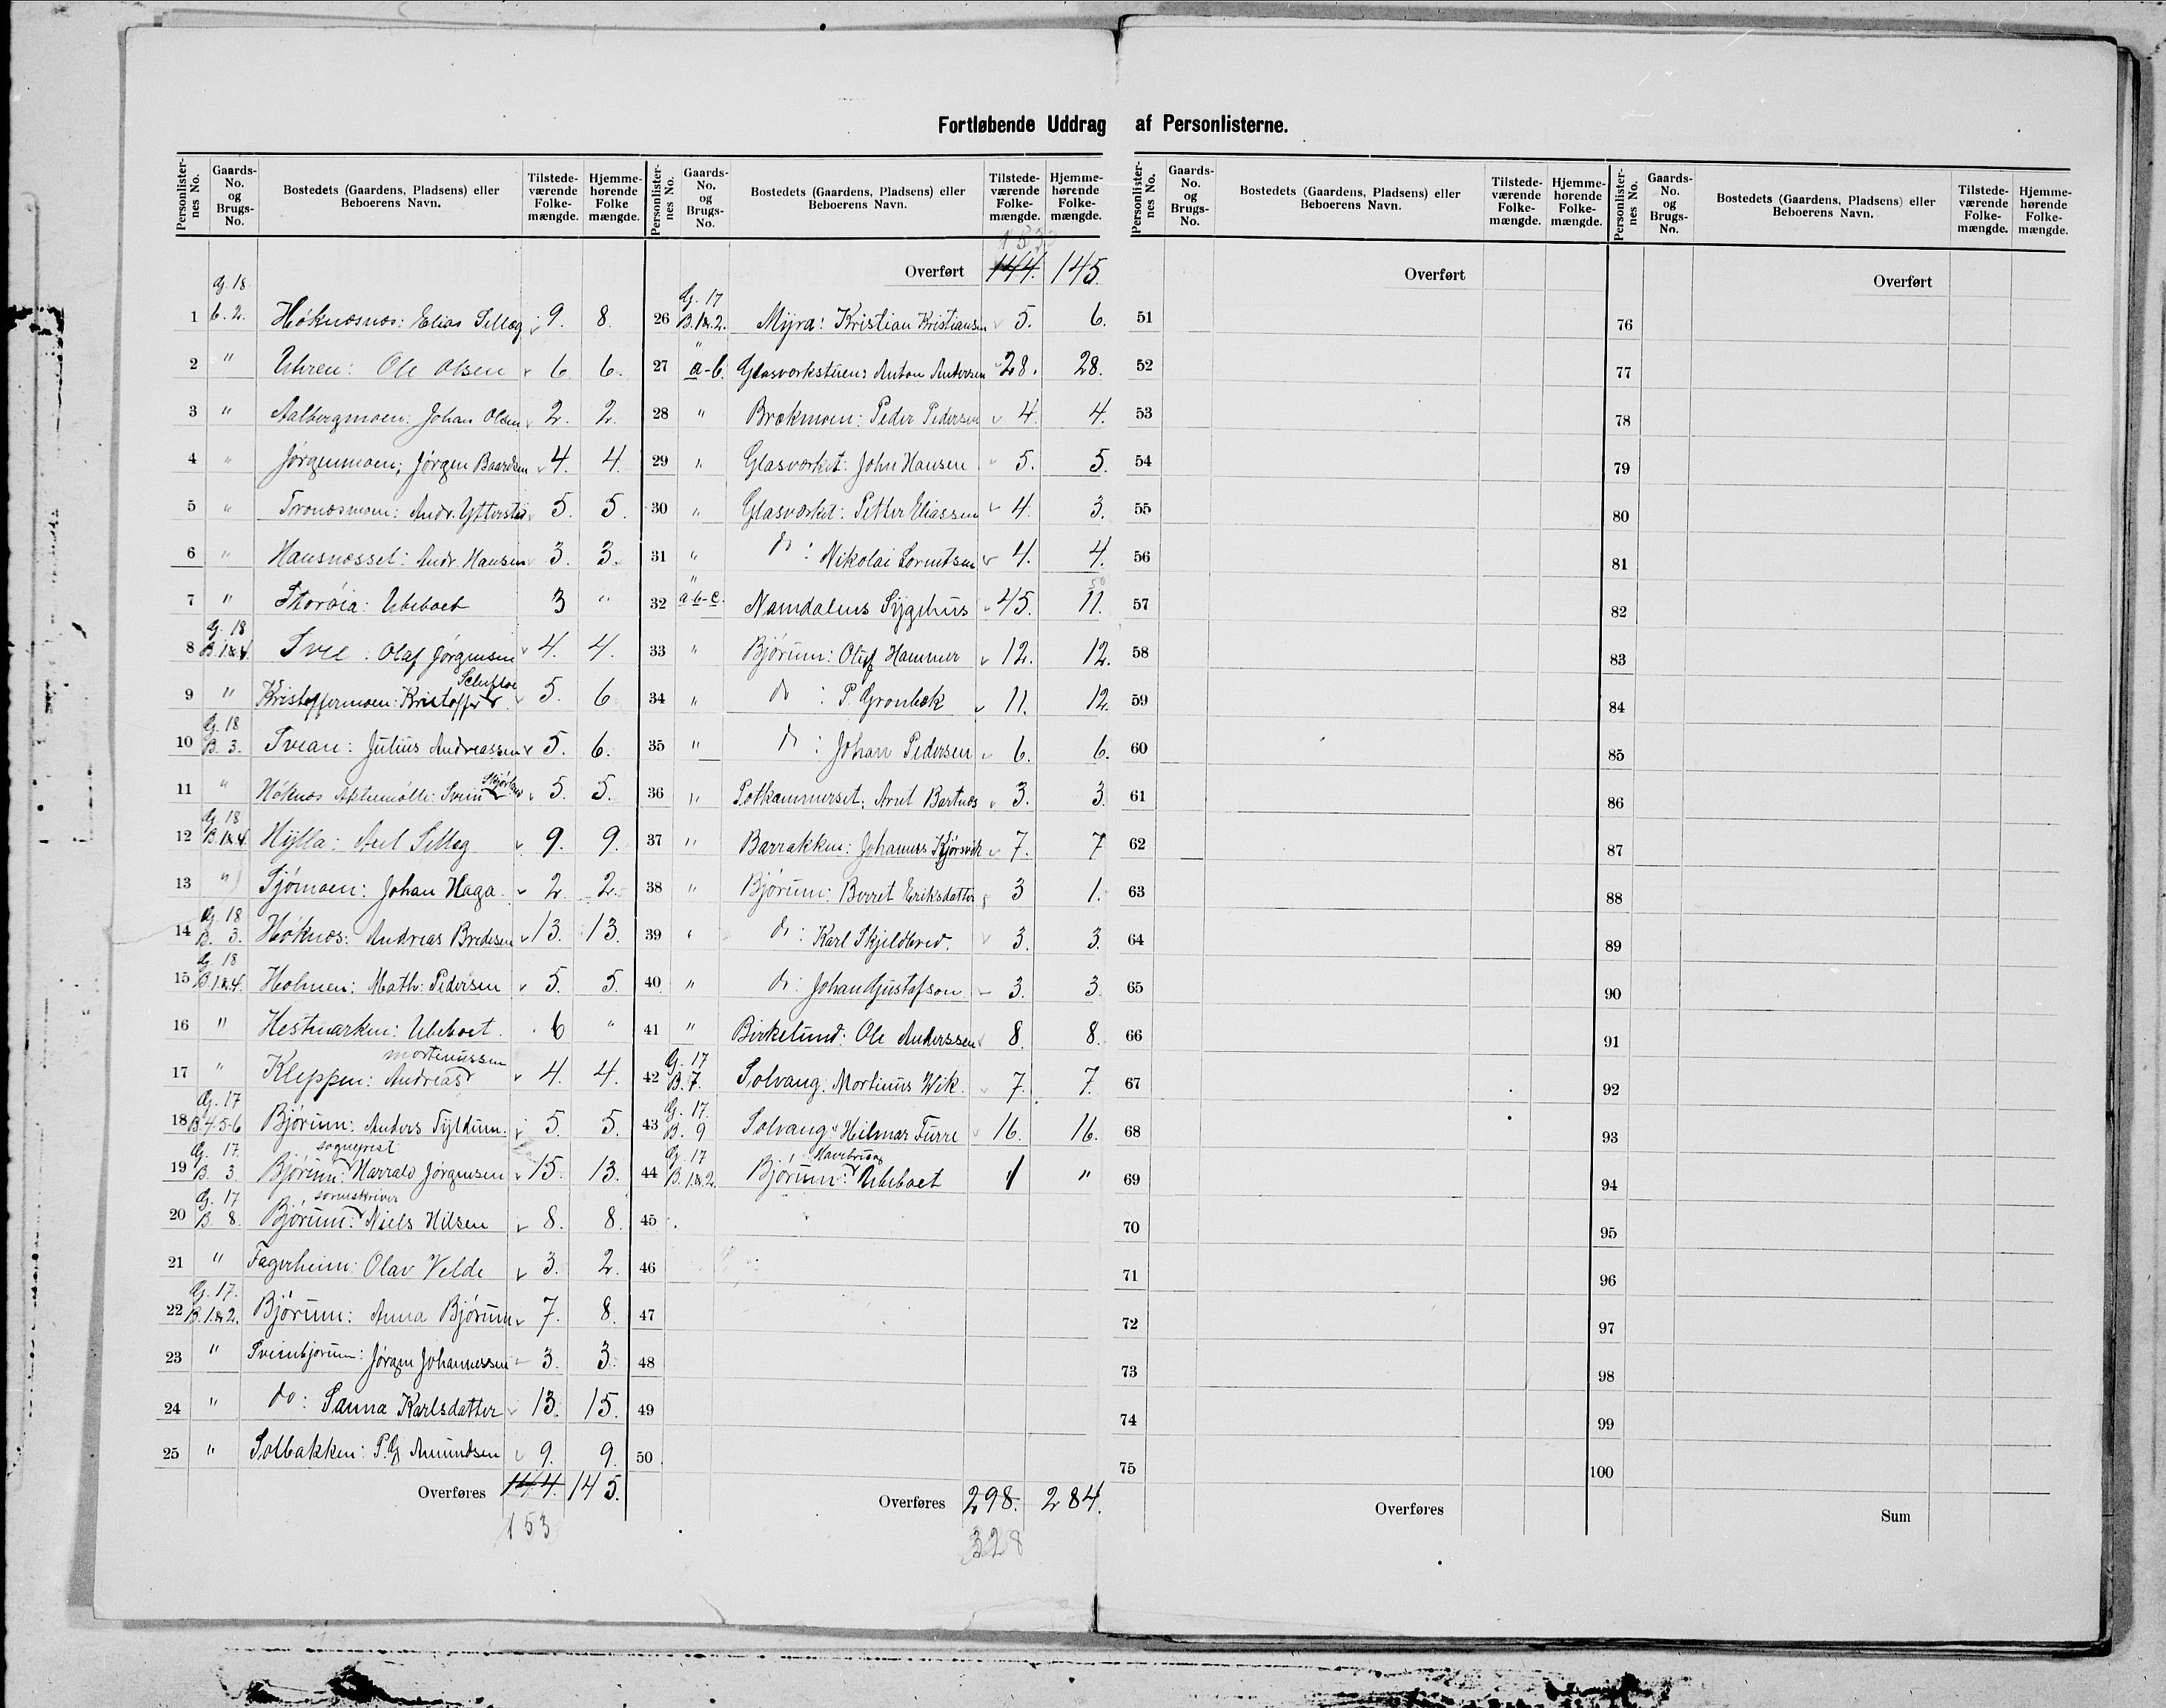 Fortløbende Uddrag af Personlisterne.
Personlisternes No. Gaards-No. og Brugs-No. Bostedets (Gaardens, Pladsens) eller Beboerens Navn. Tilstedeværende Folkemængde. Hjemmehørende Folkemængde.
1 G. 18 b. 2. Høknesnes: Elias Selleg 9. 8.
2 " Uhren: Ole Olsen 6. 6.
3 " Aalbergmoen: Johan Olsen 2. 2.
4 " Jørgenmoen; Jørgen Baardsen 4. 4.
5 " Tronesmoen: Andr. 5. 5.
6 " Hansnesset: Andr. Hansen 3. 3.
7 " Storøia: Ubeboet 3 "
8 G. 18 B. 1&4 Svee: Olaf Jørgensen 4. 4.
9 " Kristoffermoen: Kristoffer 5. 6
10 G. 18 B. 3. Svean: Julius Andreassen 5. 6.
11 " Høknes Aktiemølle: Svein 5. 5.
12 G. 18 B. 1&4. Hylla: Axel Selleg 9. 9.
13 " Sjømoen: Johan Haga 2 2.
14 G. 18 B. 3. Høknes: Andreas Bredesen 13. 13.
15 G. 18 B. 1&4. Holmen: Math: Pedersen 5. 5.
16 " Hestmarken: Ubeboet. 6 "
17 " Kleppen: Andreas mortinussen 4. 4.
18 G. 17 B. 4-5-6 Bjørum: Anders Fyldum. 5. 5.
19 G. 17. B. 3 Bjørum: sogneprest Harrald Jørgensen 15. 13.
20 G. 17 B. 8. Bjørum: sorenskriver Niels Nilsen 8. 8.
21 " Fagerheim: Olav Velde 3. 2.
22 G. 17. B. 1&2. Bjørum: Anna Bjørum 7. 8.
23 " Svinbjørum: Jørgen Johannessen 3. 3.
24 " do: Sanna Karlsdatter 13. 15.
25 " Solbakken: P. G. Amundsen 9. 9.
Overføres 144. 145.
153
Personlisternes No. Gaards-No. og Brugs-No. Bostedets (Gaardens, Pladsens) eller Beboerens Navn. Tilstedeværende Folkemængde. Hjemmehørende Folkemængde.
153
Overført 144. 145.
26 G. 17 B. 1&2. Myra: Kristian Kristiansen 5. 6.
27 " a-b. Glasverkstuen: Anton Andersen 28. 28.
28 " Brekmoen: Peder Pedersen 4. 4.
29 " Glasverket: John Hansen 5. 5.
30 " Glasverket: Petter Eliassen 4. 3.
31 " do: Nikolai Lorentsen 4. 4.
32 " a-b-c. Namdalens Sygehus 45. 11.
33 " Bjørum: Oluf Hammer 12. 12.
34 " do: P. Grønbek 11. 12.
35 " do: Johan Pedersen 6. 6.
36 " Potkammerset; Arnt Bartnes 3. 3.
37 " Barrakken: Johannes 7. 7
38 " Bjørum: Berret Eriksdatter 3 1.
39 " do: Karl Skjeldbred. 3. 3.
40 " do: Johan Gustafson 3. 3.
41 " Birkelund: Ole Anderssen 8. 8.
42 G. 17 B. 7. Solvang: Mortinus Wik. 7. 7.
43 G. 17. B. 9 Solvang: Hilmar Furre 16. 16.
44 G. 17 B. 1&2. Bjørum: Havebrug Ubeboet 1 "
45
46
47
48
49
50
Overføres 298. 284.
328
Personlisternes No. Gaards-No. og Brugs-No. Bostedets (Gaardens, Pladsens) eller Beboerens Navn. Tilstedeværende Folkemængde. Hjemmehørende Folkemængde.
Overført
51
52
53
54
55
56
57
58
59
60
61
62
63
64
65
66
67
68
69
70
71
72
73
74
75
Overføres
Personlisternes No. Gaards-No. og Brugs-No. Bostedets (Gaardens, Pladsens) eller Beboerens Navn. Tilstedeværende Folkemængde. Hjemmehørende Folkemængde.
Overført
76
77
78
79
80
81
82
83
84
85
86
87
88
89
90
91
92
93
94
95
96
97
98
99
100
Sum